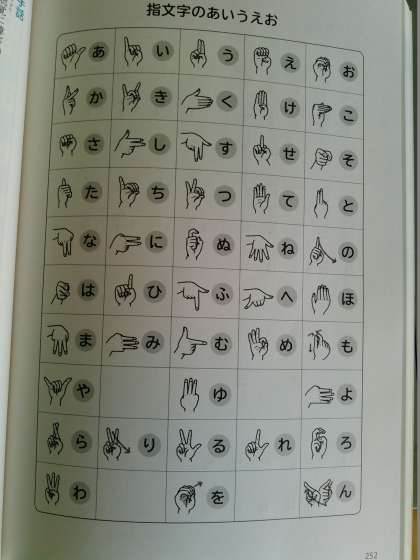 指文字のあいうえお
あ い う え お
か き く け こ
さ し す せ そ
た ち つ て と
な に ぬ ね の
は ひ ふ へ ほ
ま み む め も
や ゆ よ
ら り る れ ろ
わ を ん
252